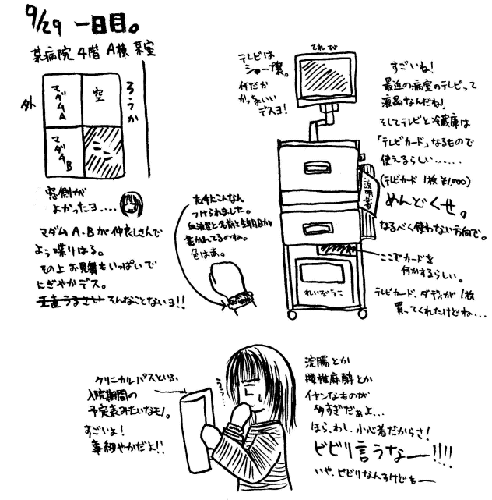 9/29 一日目。
某病院 4階 A棟 某室
外
マダムA
空
マダムB
ココ
ろうか
窓側が
よかったヨ....
マダムA・Bが仲良しさんで
よう喋りはる。
その上お見舞もいっぱいで
にぎやかデス。
そんなことないヨ!!
テレビは
シャープ製。
何だか
かっこいい
デスヨ!
てれび
すごいね!
最近の病室のテレビって
液晶なんだね!
そしてテレビと冷蔵庫は
「テレビカード」なるもので
使えるらしい......
(テレビカード 1枚 ¥1,000)
めんどくせ。
なるべく使わない方向で。
説明書
ここでカードを
何かするらしい。
テレビカード、ダディが1枚
買ってくれたけどね...
れいぞうこ
左手にこんなん
つけられました。
血液型と名前と生年月日が
書かれてるのかな。
クリニカルパスという、
入院期間の
予定表みたいなモノ。
すごいよ!
事細やかだよ!!
浣腸とか
腰椎麻酔とか
イヤンなものが
多すぎだぁよ...
ほら、わし、小心者だからさ!
ビビリ言うなー!!!!
いや、ビビリなんるけどもー